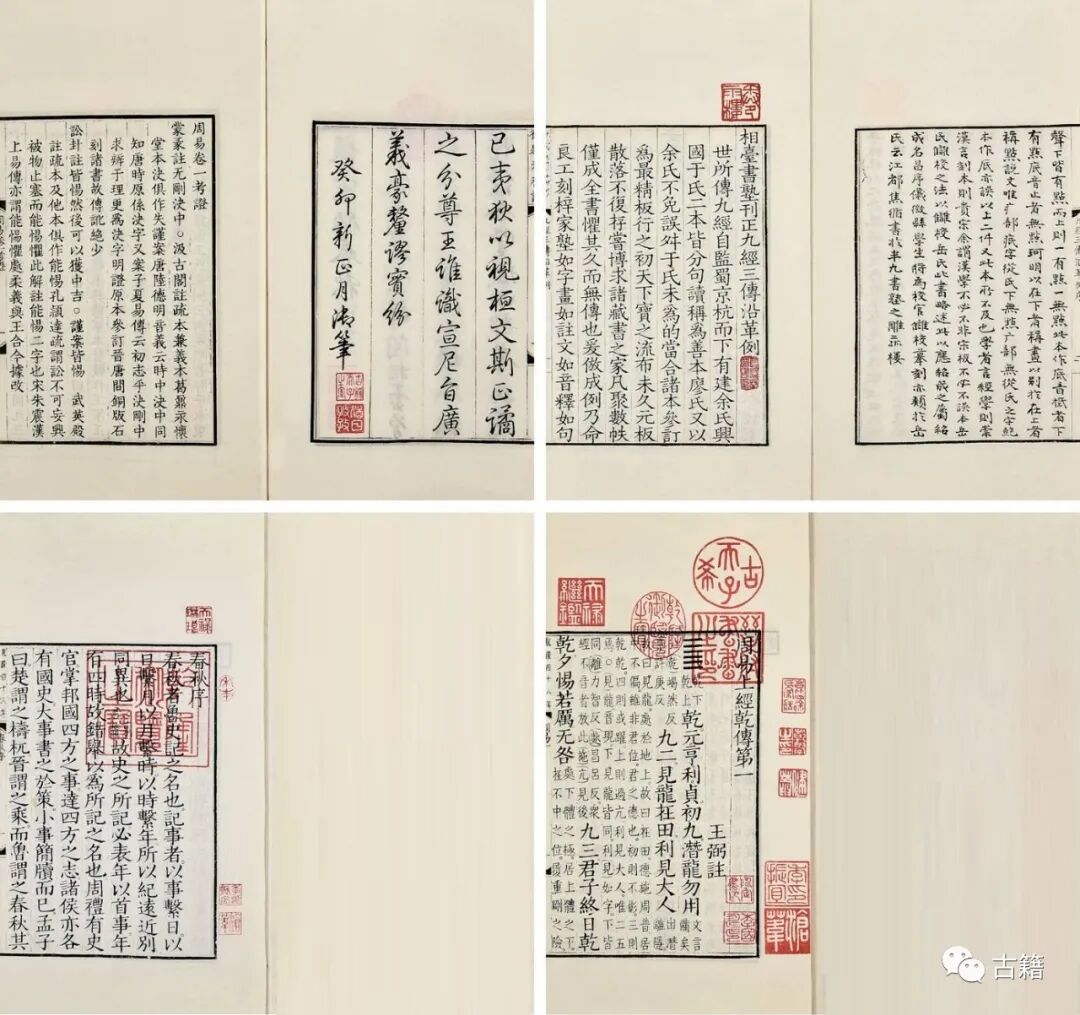 周易卷一考證
蒙彖註无剛決中○汲古閣註疏本兼義本葛鼐永懷
堂本決俱作失謹案唐陸德明音義云時中決中同
知唐時原係決字又案子夏易傳云初志乎決剛中
求辨于理更為決字明證原本參訂晉唐間銅版石
刻諸書故傳訛絕少
訟卦註皆惕然後可以獲中吉○謹案皆惕武英殿
註疏本及他本俱作能惕孔穎達疏謂訟不可妄興
被物止塞而能惕懼此解註能惕二字也宋朱震漢
上易傳亦謂能惕懼處柔義與王合今據改
已夷狄以視桓文斯正譎
之分尊王誰識宣尼旨廣
義豪釐謬實紛
癸卯新正月御筆
相臺書塾刊正九經三傳沿革例
世所傳九經自監蜀京杭而下有建余氏興
國于氏二本皆分句讀稱為善本廖氏又以
余氏不免誤舛于氏未為的當合諸本參訂
為最精板行之初天下寶之流布未久元板
散落不復存嘗博求諸藏書之家凡聚數帙
僅成全書懼其久而無傳也爰倣成例乃命
良工刻梓家塾如字畫如註文如音釋如句
聲下皆有點而上則一有點一無點此本作底音祗者下
有點底音止者無點珂明以在下者稱畫以別於在上者
稱點說文唯广部底字從氏下無點厂部無從氏之字
本作底亦誤以上二件又此本所不及也學者言經學則崇
漢言刻本則貴宗余謂漢學不必不非宋板不必不誤本岳
氏讎校之法以讎校岳氏此書略述此以應
成名昌序儀徵縣學生將為校官讎校摹刻亦類於岳
氏云江都焦循書於半九書塾之雕菰樓
春秋序
春秋者魯史記之名也記事者以事繫日以
日繫月以月繫時以時繫年所以紀遠近別
同異也故史之所記必表年以首事年
有四時故錯舉以為所記之名也周禮有史
官掌邦國四方之事達四方之志諸侯亦各
有國史大事書之於策小事簡牘而已孟子
曰楚謂之檮杌晉謂之乘而魯謂之春秋其
古希天子
天祿繼鑑
周易上經乾傳第一
王弼註
乾元亨利貞初九潛龍勿用
九二見龍在田利見大人
九三君子終日乾
乾夕惕若厲无咎
古籍